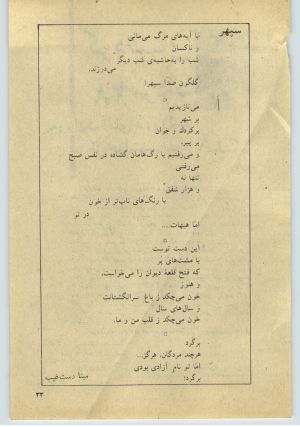 سپهر
با آیه‌های مرگ می‌مانی
و ناکسان
شب را به‌حاشیه‌ی شب دیگر
می‌درزند.
گلگون صدا سپهر!
می‌نازیدیم
بر شهر
برکودک و جوان
بر پیر،
و می‌رفتیم با رگ‌هامان گشاده در نفس صبح
می‌رفتی
تنها نه
و هزار شفق
با رنگ‌های ناب‌تر از خون
در تو
اما هیهات...
این دست توست
با مشت‌های پر
که فتح قلعهٔ دیوان را می‌خواست،
و هنوز
خون می‌چکد ز باغ سرانگشتانت
و سال‌های سال
خون می‌چکد ز قلب من و ما.
برگرد
هرچند مردگان، هرگز...
اما تو نام آزادی بودی
برگرد!
مینا دست‌غیب
۲۳